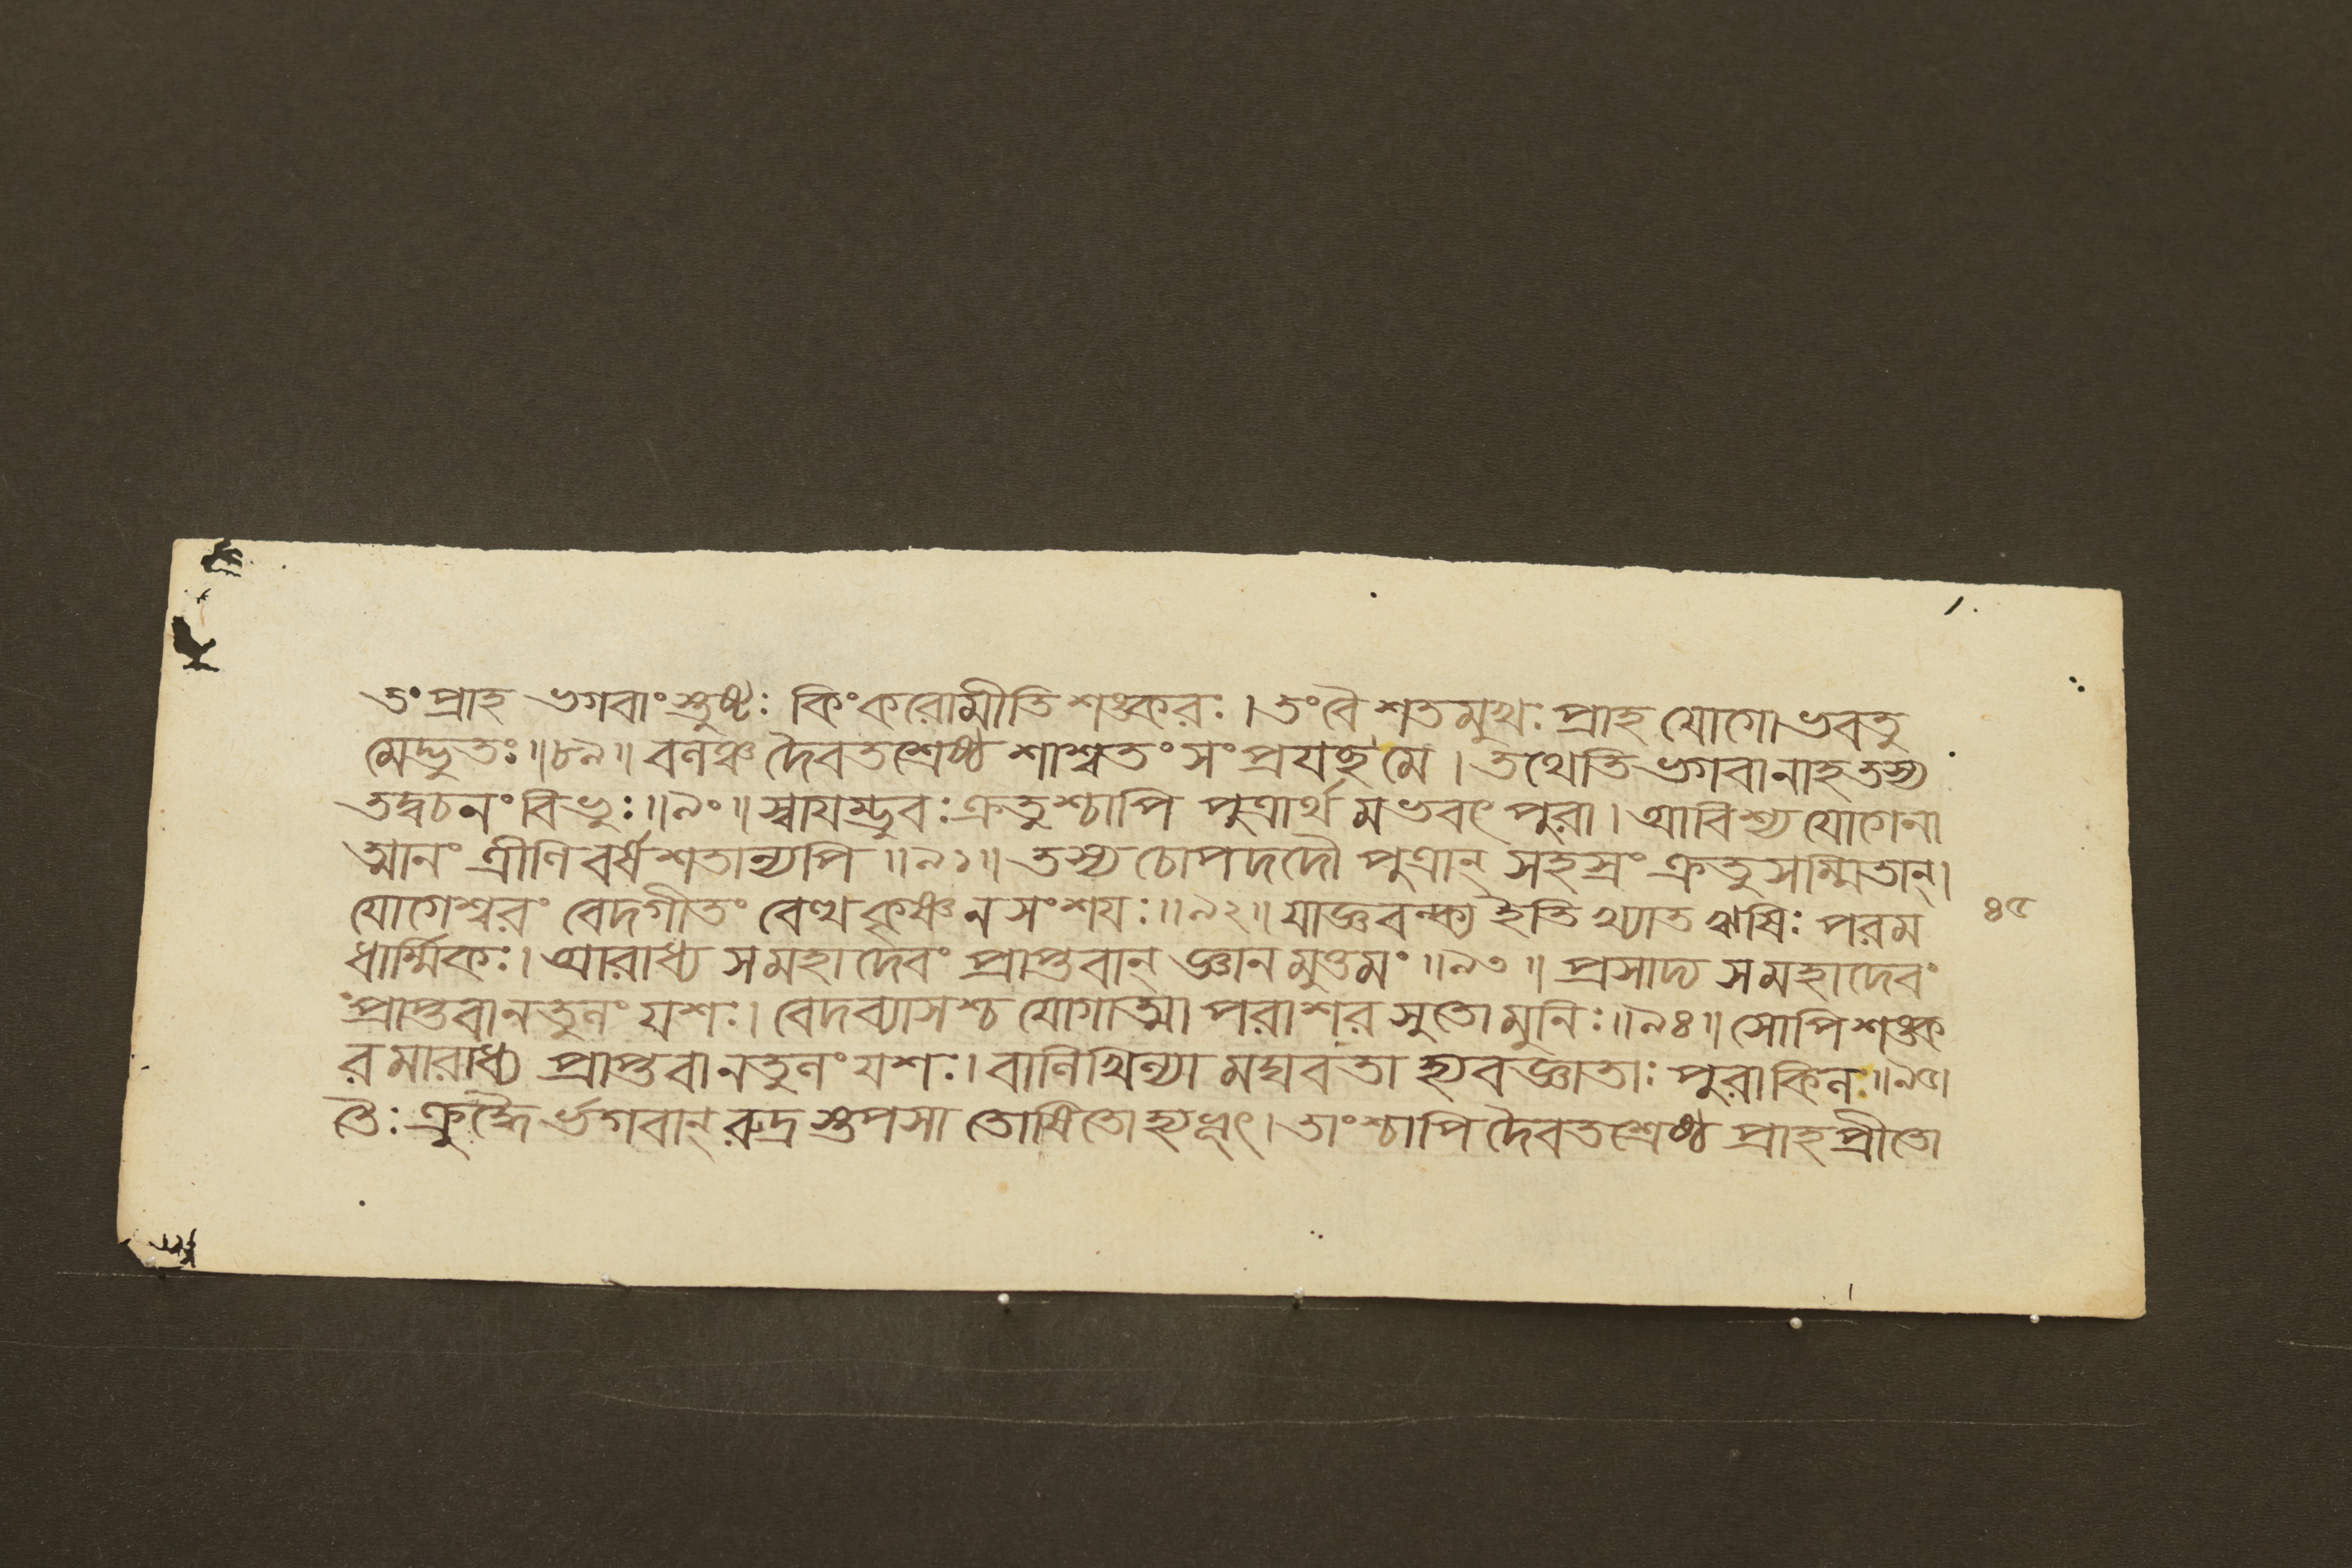 তং প্রাহ ভগবাংস্তুষ্টঃ কিংকরোমীতি শঙ্করঃ । তংবৈ শতমুখঃ প্রাহ যোগো ভবতু
মেদ্ভুতঃ ॥৮৯॥ বলঞ্চ দৈবতশ্রেষ্ঠ শাশ্বতং সংপ্রযচ্ছ মে । তথেতি ভগবানাহ তস্য
তদ্বচনং বিভুঃ ॥৯০॥ স্বাযম্ভুবঃ ক্রতুশ্চাপি পুত্রার্থমভবৎ পুরা । আবিশ্য যোগেনা
ত্মানং ত্রীণি বর্ষশতান্যপি ॥৯১॥ তস্য চোপদদৌ পুত্রান্ সহস্রং ক্রতুসম্মিতান্ ।
যোগেশ্বরং বেদগীতং বেত্থ কৃষ্ণ ন সংশযঃ ॥৯২॥ যাজ্ঞবল্ক্য ইতি খ্যাত ঋষিঃ পরম
৪৫
ধার্ম্মিকঃ । আরাধ্য স মহাদেবং প্রাপ্তবান্ জ্ঞানমুত্তমং ॥৯৩॥ প্রসাদ্য স মহাদেবং
প্রাপ্তবানতুলং যশঃ । বেদব্যাসশ্চ যোগাত্মা পরাশরসুতো মুনিঃ ॥৯৪॥ সোপি শঙ্ক
রমারাধ্য প্রাপ্তবানতুলং যশঃ । বালিখিল্যা মঘবতা হ্যবজ্ঞাতাঃ পুরা কিল ॥৯৫॥
তৈঃ ক্রুদ্ধৈর্ভগবান্ রুদ্রস্তপসা তোষিতো হ্যভূৎ । তাংশ্চাপি দৈবতশ্রেষ্ঠ প্রাহ প্রীতো